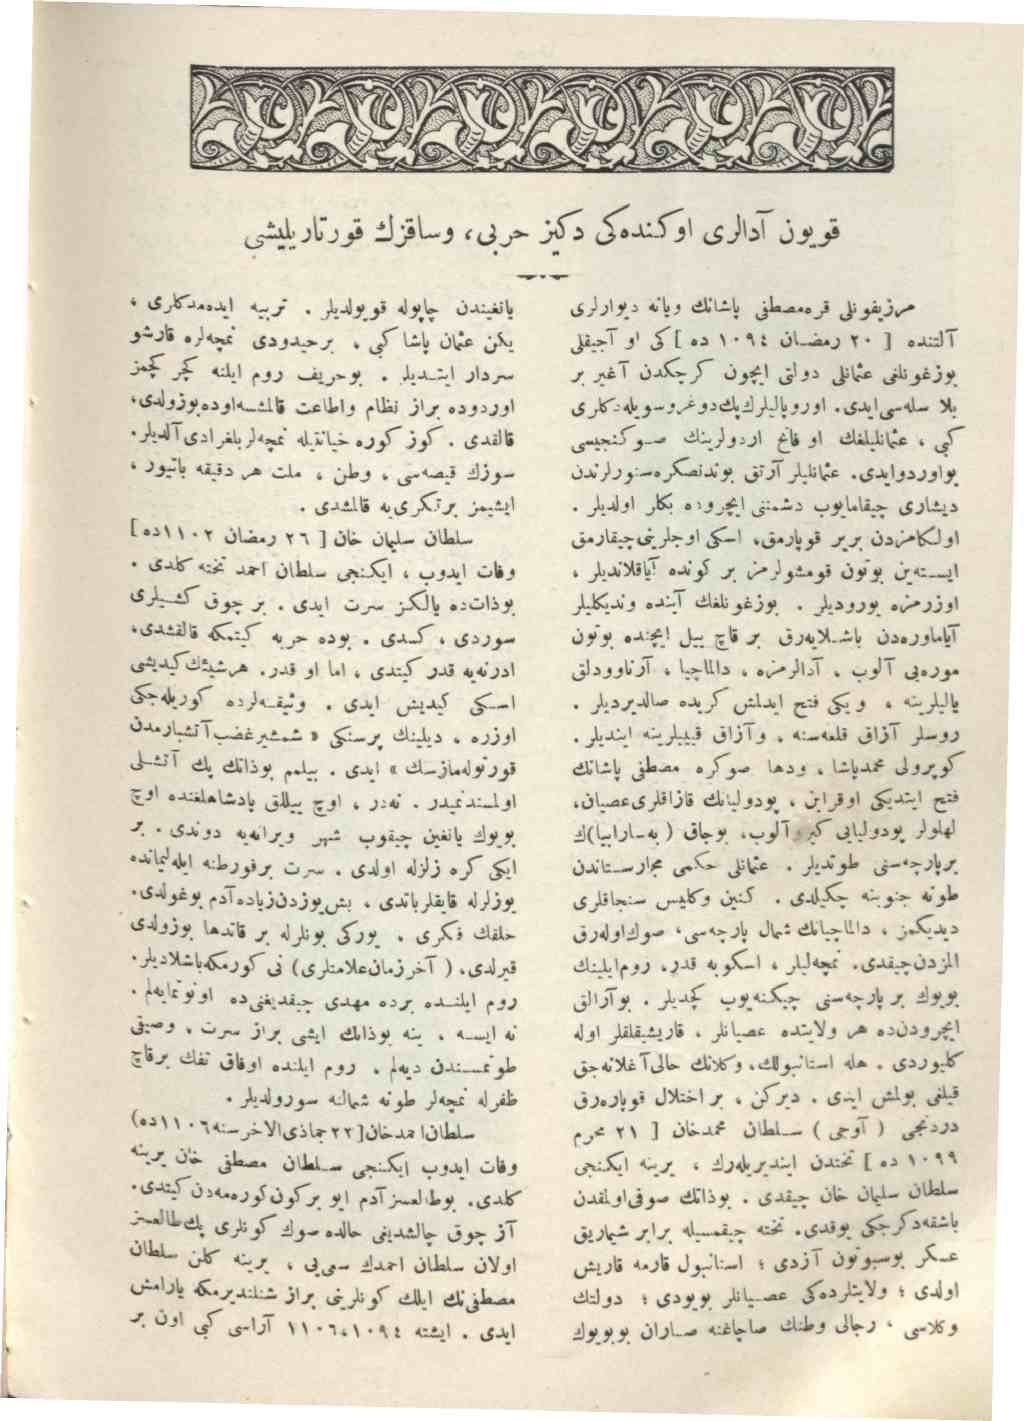 قویون آدالری اوكنده‌كی دكیز حربی، وساقزك قورتاریلیشی
مرزیفونلی قره‌مصطفی پاشانك ویانه دیوارلری
آلتنده [ ٢٠ رمضان ١٠٩٤ ده ]كی او آجیقلی
بوزغونلغی عثمانلی دولتی ایچون كرچكدن آغیر بر
بلا سله‌سی‌ایدی. اوروپالیلرك‌پك‌دوغروسویله‌دكلری
كبی ، عثمانلیلغك او فاتح اردولرینك صوكنجیسی
بواوردوایدی. عثمانلیلر آرتق بوندنصكره‌سنورلرندن
دیشاری چیقامایوب دشمننی ایچروده بكلر اولدیلر .
اولكامزدن بریر قوپارمق، اسكی اوجلرینی‌چیقارمق
ایسته‌ین بوتون قومشولرمز بر كونده آیاقلاندیلر ،
اوزرمزه یورودیلر . بوزغونلغك آینده وندیكلیلر
آیاماوره‌دن باشلایه‌رق بر قاچ ییل ایچنده بوتون
موره‌یی آلوب ، آدالرمزه ، دالماچیا ، آرناوودلق
یالیلرینه ، ویكی فتح ایدلمش كریده صالدیردیلر .
روسلر آزاق قلعه‌سنه ، وآزاق قییلرینه ایندیلر .
كوپرولی محمدپاشا ، ودها صوكره مصطفی پاشانك
فتح ایتدیكی اوقراین ، پودولیانك قازاقلری‌عصیان،
لهلولر پودولیایی كیرو آلوب، بوجاق ( به‌سارابیا)ك
برپارچه‌سنی طوتدیلر . عثمانلی حكمی مجارستاندن
طونه جنوبنه چكیلدی . كنین وكلیس سنجاقلری
دیدیكمز ، دالماچیانك شمال پارچه‌سی، صوك‌اوله‌رق
المزدن‌چیقدی. نمچه‌لیلر ، اسكوبه قدر، روم‌ایلینك
بویوك بر پارچه‌سنی چیكنه‌یوب كچدیلر . بوآرالق
ایچرودن‌ده هر ولایتده عصیانلر ، قاریشیقلقلر اوله
كلیوردی . هله استانبولك، وكلانك حالی آغلانه‌جق
قیلغی بولمش ایدی . دیركن ، بر اختلال قوپاره‌رق
دردنجی ( آوجی ) سلطان محمدخان [ ٢١ محرم
١٠٩٩ ده ] تختدن ایندیریله‌رك ، یرینه ایكنجی
سلطان سلیمان خان چیقدی . بوذاتك صوفی‌اولمقدن
باشقه‌دكرجكی یوقدی. تخته چیقمسیله برابر شیماریق
عسكر بوسبوتون آزدی ؛ استانبول قارمه قاریش
اولدی ؛ ولایتلرده‌كی عصیانلر بویودی ؛ دولتك
وكلاسی ، رجالی وطنك صاچاغنه صاران بوبویوك
یانغیندن چاپوله قویولدیلر . تربیه ایده‌مدكلری ،
یكن عثمان پاشا كبی ، برحیدودی نمچه‌لره قارشو
سردار ایتدیلر . بوحریف روم ایلنه كچر كچمز
اوردوده براز نظام واطاعت قالمشسه‌اوده‌بوزولدی،
قالمدی . كوز كوره خیانتیله نمچه‌لربلغرادی‌آلدیلر.
سوزك قیصه‌سی ، وطن ، ملت هر دقیقه باتیور ،
ایشیمز برتكری‌یه قالمشدی .
سلطان سلیمان خان [ ٢٦ رمضان ١١٠٢ده ]
وفات ایدوب ، ایكنجی سلطان احمد تخته كلدی .
بوذات‌ده یالكز سرت ایدی . بر چوق كشیلری
سوردی ، كسدی . بوده حربه كیتمكه قالقشدی،
ادرنه‌یه قدر كیتدی ، اما او قدر. هرشیئك‌كیدیشی
اسكی كیدیش ایدی . وثیقه‌لرده كوریله‌جكی
اوزره ، دیلینك پرسنكی « شمشیرغضب‌آتشبارمدن
قورتوله‌مازسك » ایدی . بیلمم بوذاتك پك آتشلی
اولمسندنمیدر . نه‌در ، اوچ ییللق پادشاهلغنده اوچ
بویوك یانغین چیقوب شهر ویرانه‌یه دوندی . بر
ایكی كره زلزله اولدی . سرت برفورطنه ایله‌لیمانده
یوزلرله قایقلرباتدی ، بش‌یوزدن‌زیاده‌آدم بوغولدی.
خلقك فكری ، یوركی بونلرله بر قاتدها بوزولدی
قیرلدی، ( آخرزمان‌علامتلری ) نی كورمكه‌باشلادیلر.
روم ایلنده برده مهدی چیقدیغنی‌ده اونوتمایه‌لم .
نه ایسه ، ینه بوذاتك ایشی براز سرت ، وصیقی
طوتمسندن دیه‌لم ، روم ایلنده اوفاق تفك برقاچ
ظفرله نمچه‌لر طونه شمالنه سورولدیلر .
سلطان‌احمدخان[٢٢جمادی‌الاخرسنه١١٠٦ده)
وفات ایدوب ایكنجی سلطان مصطفی خان یرینه
كلدی. بوطالعسز آدم ایو بركون‌كوره‌مه‌دن كیتدی.
آز چوق چالشدیغی حالده صوك كونلری پك‌طالعسز
اولان سلطان احمدك سمی‌یی ، یرینه كلن سلطان
مصطفی‌نك ایلك كونلرینی براز شنلندیرمكه یارامش
ایدی . ایشته ١٠٩٤، ١١٠٦ آراسی كبی اون بر